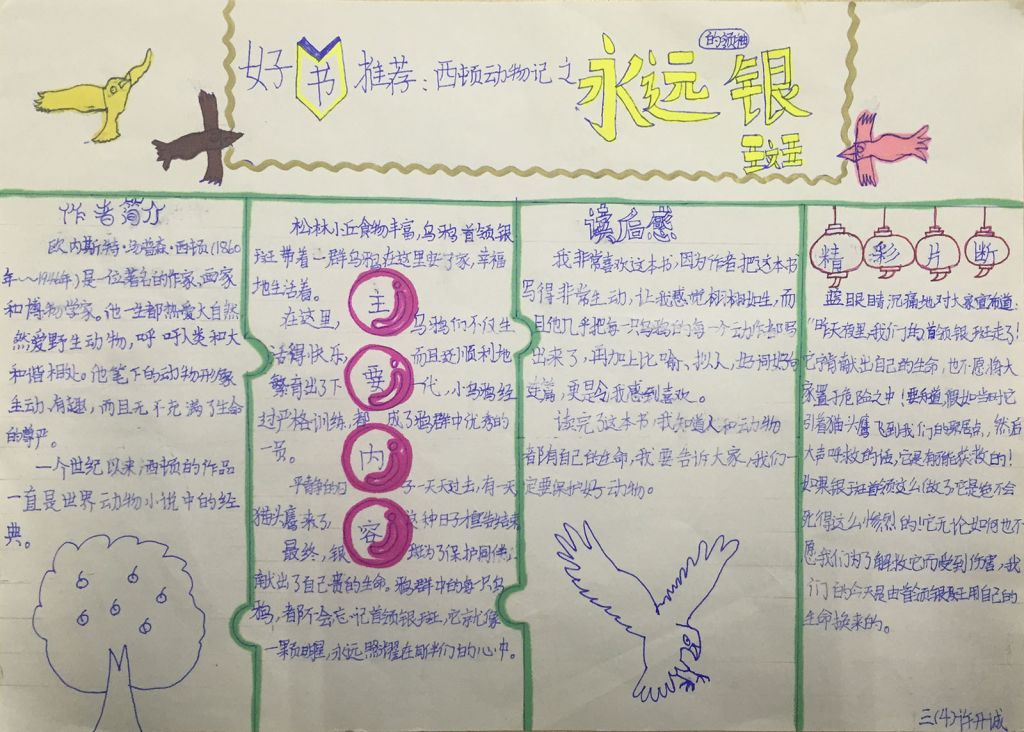 好书推荐：西顿动物记之永远的领袖银斑
作者简介
欧内斯特·马普森·西顿（1860
年～1946年）是一位著名的作家，画家
和博物学家。他一生都热爱大自然
然爱野生动物，呼吁人类和大
和谐相处。他笔下的动物形象
生动有趣，而且无不充满了生命
的尊严。
一个世纪以来，西顿的作品
一直是世界动物小说中的经
典。
主要内容
松林小丘食物丰富，乌鸦首领银
斑带着一群乌鸦在这里安了家，幸福
地生活着。
在这里，乌鸦们不仅生
活得快乐，而且还顺利地
繁育出了下一代，小乌鸦经
过严格训练，都成了鸦群中优秀的
一员。
平静的日子一天天过去，有一天
猫头鹰来了，这种日子宣告结束
最终，银斑为了保护同伴，
献出了自己贵的生命。鸦群中的每一只乌
鸦，都不会忘记首领银斑，它就像
一颗明星，永远照耀在同伴们的心中。
读后感
我非常喜欢这本书，因为作者把这本书
写得非常生动，让我感觉栩栩如生，而
且他几乎把每一只乌鸦的每一个动作都写
出来了，再加上比喻、拟人，好词好句
这篇，更是令我感到喜欢。
读完了这本书，我知道人和动物
都有自己的生命，我要告诉大家，我们一
定要保护好动物。
精彩片断
蓝眼睛沉痛地对大家宣布道：
“昨天夜里，我们的首领银斑走了！
它宁肯献出自己的生命，也不愿将大
家置于危险之中！要知道，假如当时它
引着猫头鹰飞到我们的聚居点，然后
大声呼救的话，它是有可能获救的！
如果银斑首领这么做了，它是绝不会
死得这么惨烈的！它无论如何也不
愿我们为了解救它而受到伤害，我
们的今天是由首领银斑用自己的
生命换来的。
三（4）许丹诚